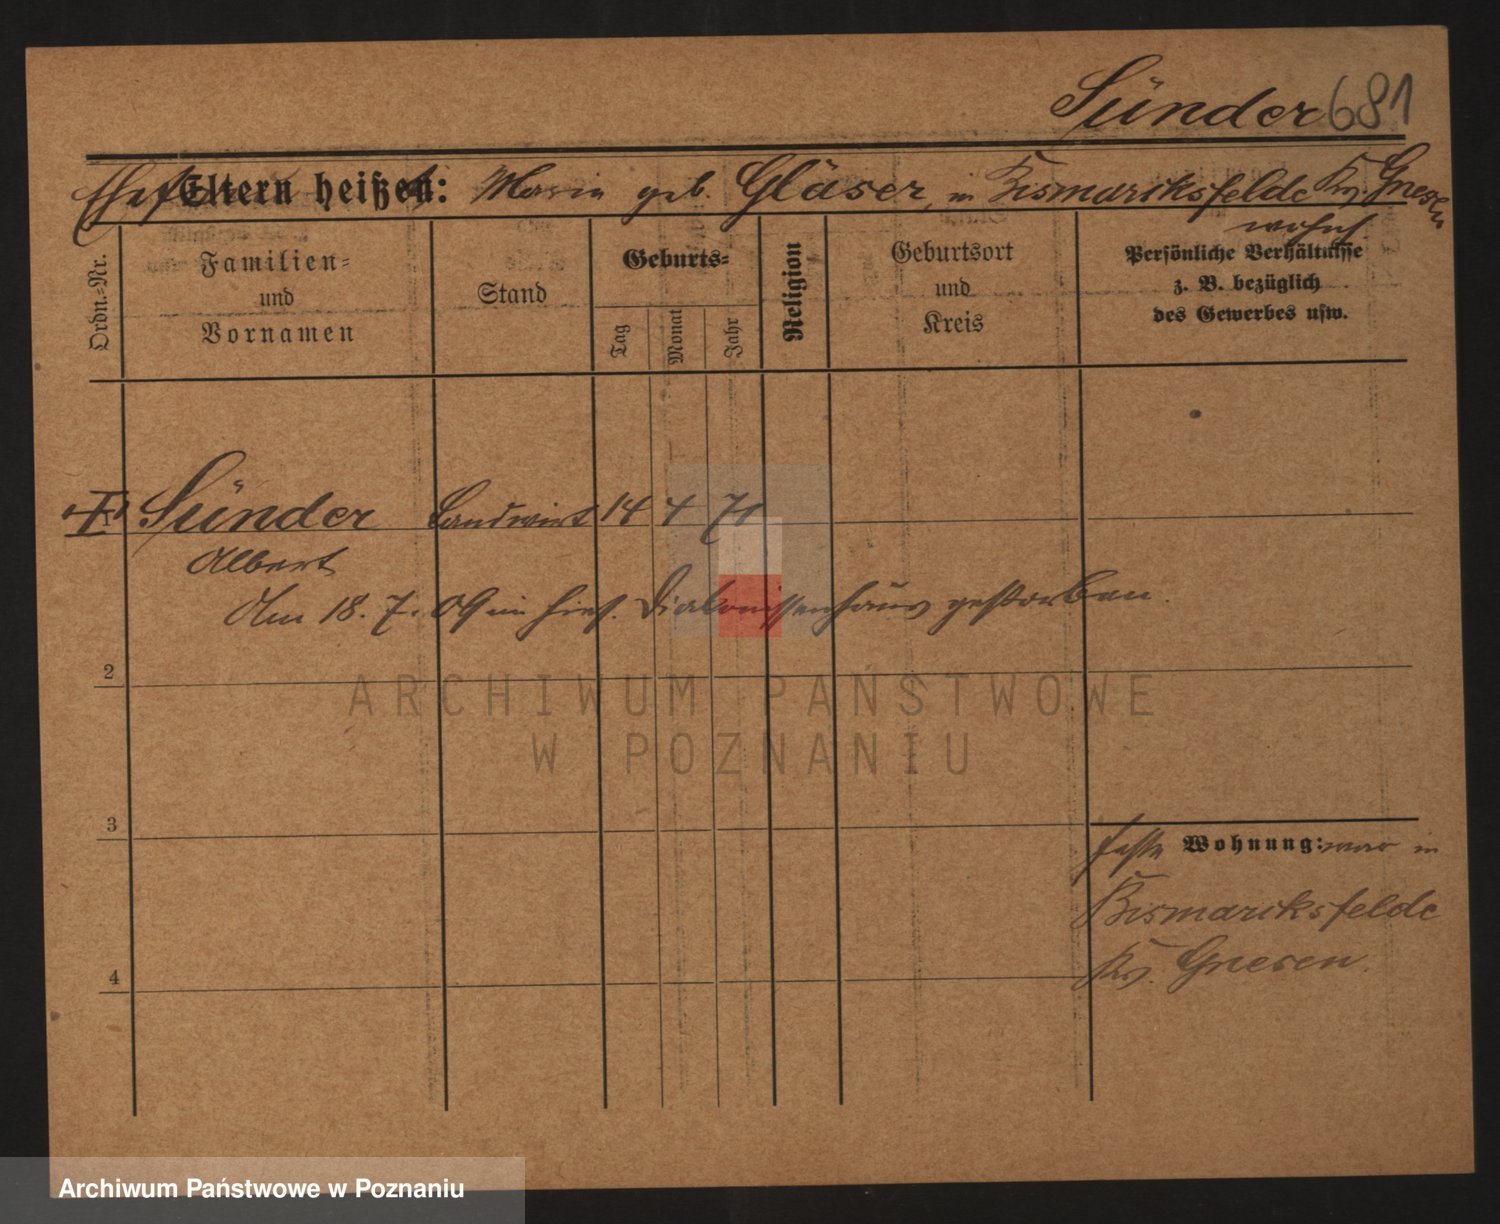 Sünder 681
Eltern heißen: Marie geb. Gläser, in Bismarcksfelde Kr. Gnesen
wohnh
Ordn.=Nr.
Familien=
und
Vornamen
Stand
Geburts=
Tag
Monat
Jahr
Religion
Geburtsort
und
Kreis
Persönliche Verhältnisse
z. B. bezüglich
des Gewerbes usw.
1 Sünder Landwirt 14 4 71
Albert
Am 18. 7. 09 im hies. Diakonissenhaus gestorben.
2
3
4
feste Wohnung: war in
Bismarcksfelde
Kr. Gnesen.
ARCHIWUM PAŃSTWOWE
W POZNANIU
Archiwum Państwowe w Poznaniu